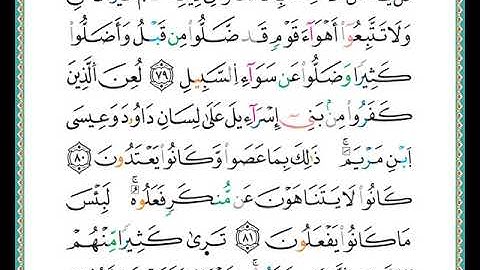 وَلَا تَتَّبِعُوٓا۟ أَهْوَآءَ قَوْمٍ قَدْ ضَلُّوا۟ مِن قَبْلُ وَأَضَلُّوا۟
كَثِيرًا وَضَلُّوا۟ عَن سَوَآءِ ٱلسَّبِيلِ ٧٩ لُعِنَ ٱلَّذِينَ
كَفَرُوا۟ مِنۢ بَنِىٓ إِسْرَٰٓءِيلَ عَلَىٰ لِسَانِ دَاوُۥدَ وَعِيسَى
ٱبْنِ مَرْيَمَ ۚ ذَٰلِكَ بِمَا عَصَوا۟ وَّكَانُوا۟ يَعْتَدُونَ ٨٠
كَانُوا۟ لَا يَتَنَاهَوْنَ عَن مُّنكَرٍ فَعَلُوهُ ۚ لَبِئْسَ
مَا كَانُوا۟ يَفْعَلُونَ ٨١ تَرَىٰ كَثِيرًا مِّنْهُمْ